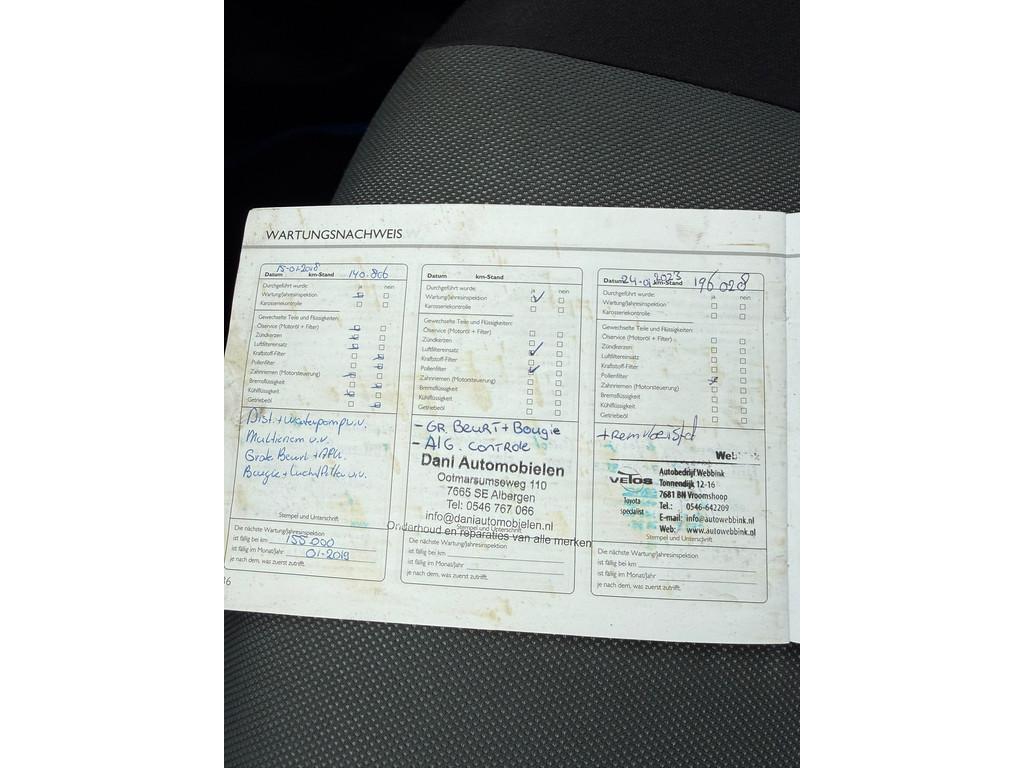 WARTUNGSNACHWEIS
15-01-2018 140.866
Datum km-Stand
Durchgeführt wurde: ja nein
Wartung/Jahresinspektion
Karosseriekontrolle
Gewechselte Teile und Flüssigkeiten:
Ölservice (Motoröl + Filter)
Zündkerzen
Luftfiltereinsatz
Kraftstoff-Filter
Pollenfilter
Zahnriemen (Motorsteuerung)
Bremsflüssigkeit
Kühlflüssigkeit
Getriebeöl
Dist. + waterpomp v.v.
Multiriem v.v.
Grote Beurt + APK.
Bougie + Luchtfilter v.v.
Stempel und Unterschrift
Die nächste Wartung/Jahresinspektion
ist fällig bei km 155 000
ist fällig im Monat/Jahr 01-2019
je nach dem, was zuerst zutrifft.
36
Datum km-Stand
Durchgeführt wurde: ja nein
Wartung/Jahresinspektion
Karosseriekontrolle
Gewechselte Teile und Flüssigkeiten:
Ölservice (Motoröl + Filter)
Zündkerzen
Luftfiltereinsatz
Kraftstoff-Filter
Pollenfilter
Zahnriemen (Motorsteuerung)
Bremsflüssigkeit
Kühlflüssigkeit
Getriebeöl
- GR. BEURT + Bougie
- AIG. CONTROLE
Dani Automobielen
Ootmarsumseweg 110
7665 SE Albergen
Tel: 0546 767 066
info@daniautomobielen.nl
Stempel und Unterschrift
Onderhoud en reparaties van alle merken
Die nächste Wartung/Jahresinspektion
ist fällig bei km
ist fällig im Monat/Jahr
je nach dem, was zuerst zutrifft.
Datum 24-01-2023 km-Stand 196028
Durchgeführt wurde: ja nein
Wartung/Jahresinspektion
Karosseriekontrolle
Gewechselte Teile und Flüssigkeiten:
Ölservice (Motoröl + Filter)
Zündkerzen
Luftfiltereinsatz
Kraftstoff-Filter
Pollenfilter
Zahnriemen (Motorsteuerung)
Bremsflüssigkeit
Kühlflüssigkeit
Getriebeöl
+ remvloeistof
VETOS
Toyota
specialist
Autobedrijf Webbink
Tonnendijk 12-16
7681 BN Vroomshoop
Tel.: 0546-642209
E-mail: info@autowebbink.nl
Web: www.autowebbink.nl
Stempel und Unterschrift
Die nächste Wartung/Jahresinspektion
ist fällig bei km
ist fällig im Monat/Jahr
je nach dem, was zuerst zutrifft.